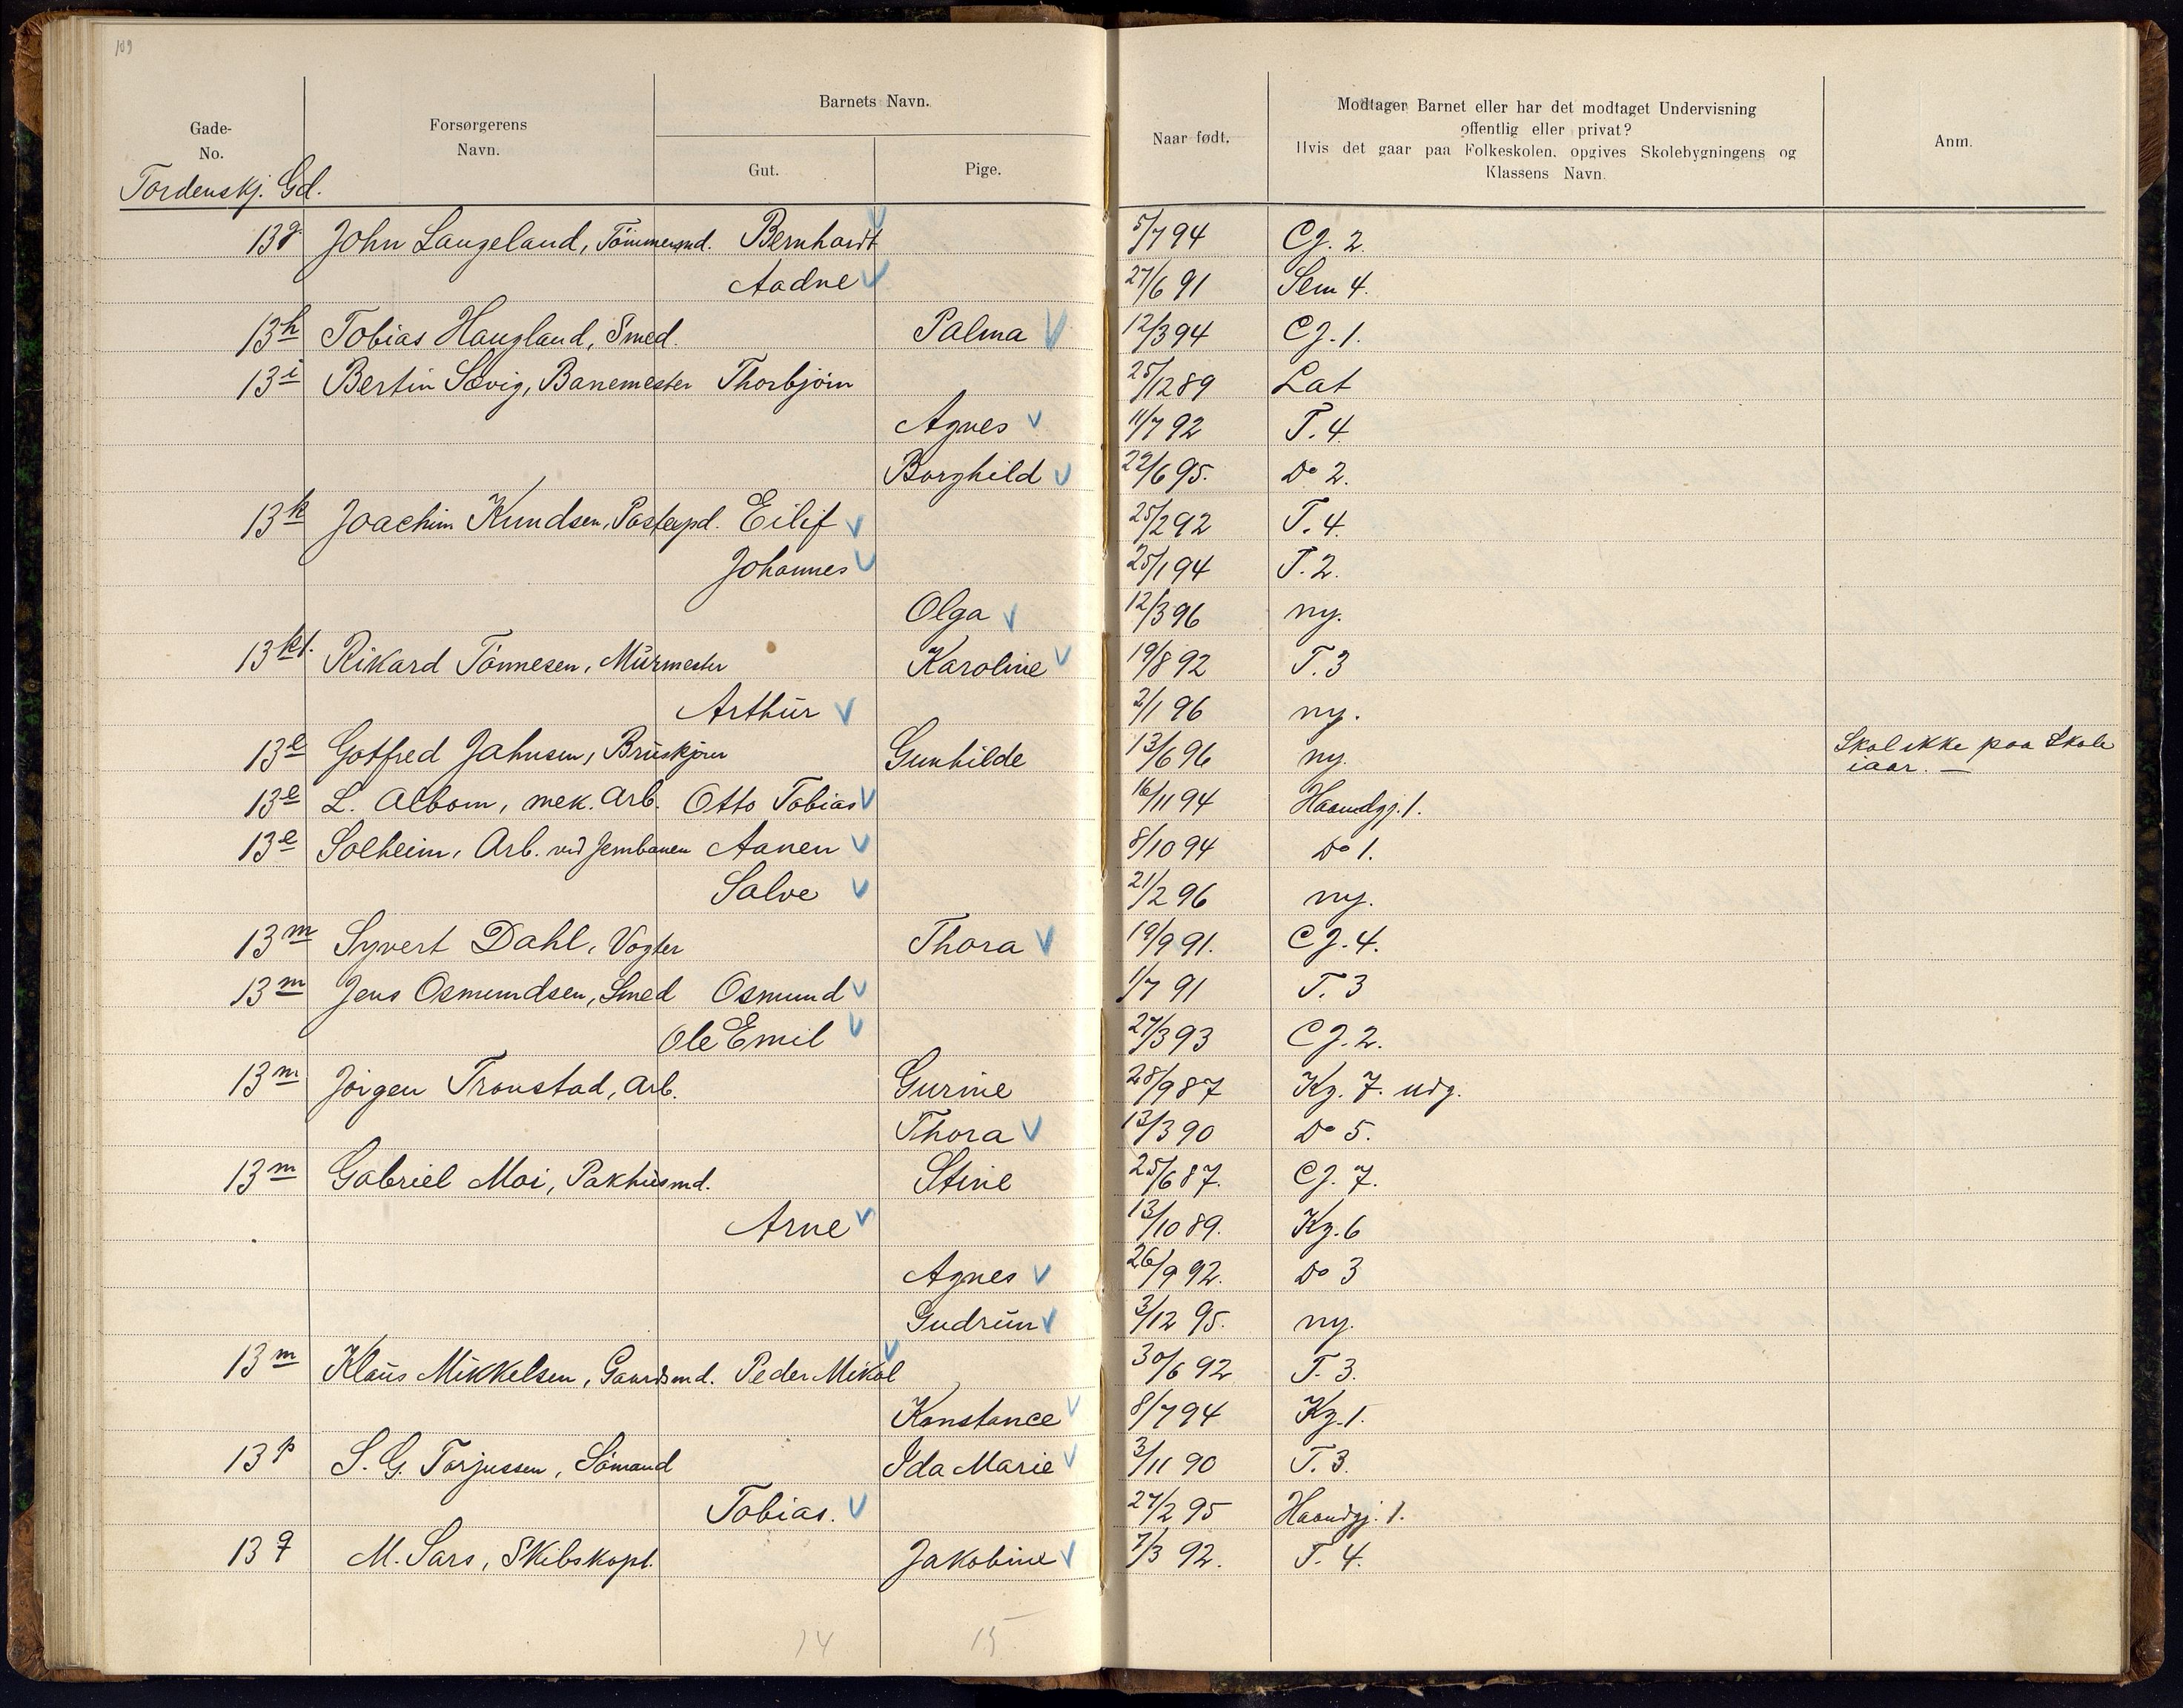 109
Gade-
No.
Forsørgerens
Navn.
Barnets Navn.
Gut.
Pige.
Naar født.
Modtager Barnet eller har det modtaget Undervisning
offentlig eller privat?
Hvis det gaar paa Folkeskolen, opgives Skolebygningens og
Klassens Navn.
Anm.
Tordenskj. Gd.
13g John Langeland, Tömmermd. Bernhardt 5/7 94 CJ. 2.
Aadne 27/6 91 Sem 4.
13h Tobias Haugland, Smed. Palma 12/3 94 CJ. 1.
13i Bertin Sævig, Banemester Thorbjörn 25/12 89 Lat
Agnes 11/7 92 T. 4.
Borghild 22/6 95. Do 2.
13k Joachim Knudsen, Postexpd. Eilif 25/2 92 T. 4.
Johannes 25/1 94 T. 2.
Olga 12/3 96 ny.
13k1. Rikard Tönnesen, Murmester Karoline 19/8 92 T. 3
Arthur 2/1 96 ny.
13l Gotfred Jahnsen, Bruskjører Gunhilde 13/6 96 ny. Skal ikke paa Skole
iaar. —
13l L. Albom, mek. Arb. Otto Tobias 16/11 94 Haandgj. 1.
13l Solheim, Arb. ved Jernbanen Aanen 8/10 94 Do 1.
Salve 21/2 96 ny.
13m Syvert Dahl, Vogter Thora 19/9 91. CJ. 4.
13m Jens Osmundsen, Smed Osmund 1/7 91 T. 3
Ole Emil 27/3 93 CJ. 2.
13m Jörgen Tronstad, Arb. Gurine 28/9 87 Kg. 7. udg.
Thora 13/3 90 Do 5.
13m Gabriel Moi, Pakhusmd. Stine 25/6 87. CJ. 7.
Arne 13/10 89. Kg. 6
Agnes 26/9 92. Do 3
Gudrun 3/12 95. ny.
13m Klaus Mikkelsen, Gaardsmd. Peder Mikal 30/6 92 T. 3.
Konstance 8/7 94 Kg. 1.
13p S. G. Torjussen, Sömand Ida Marie 3/11 90 T. 3.
Tobias. 27/2 95 Haandgj. 1.
13q M. Sars, Skibskapt. Jakobine 7/3 92. T. 4.
14 15